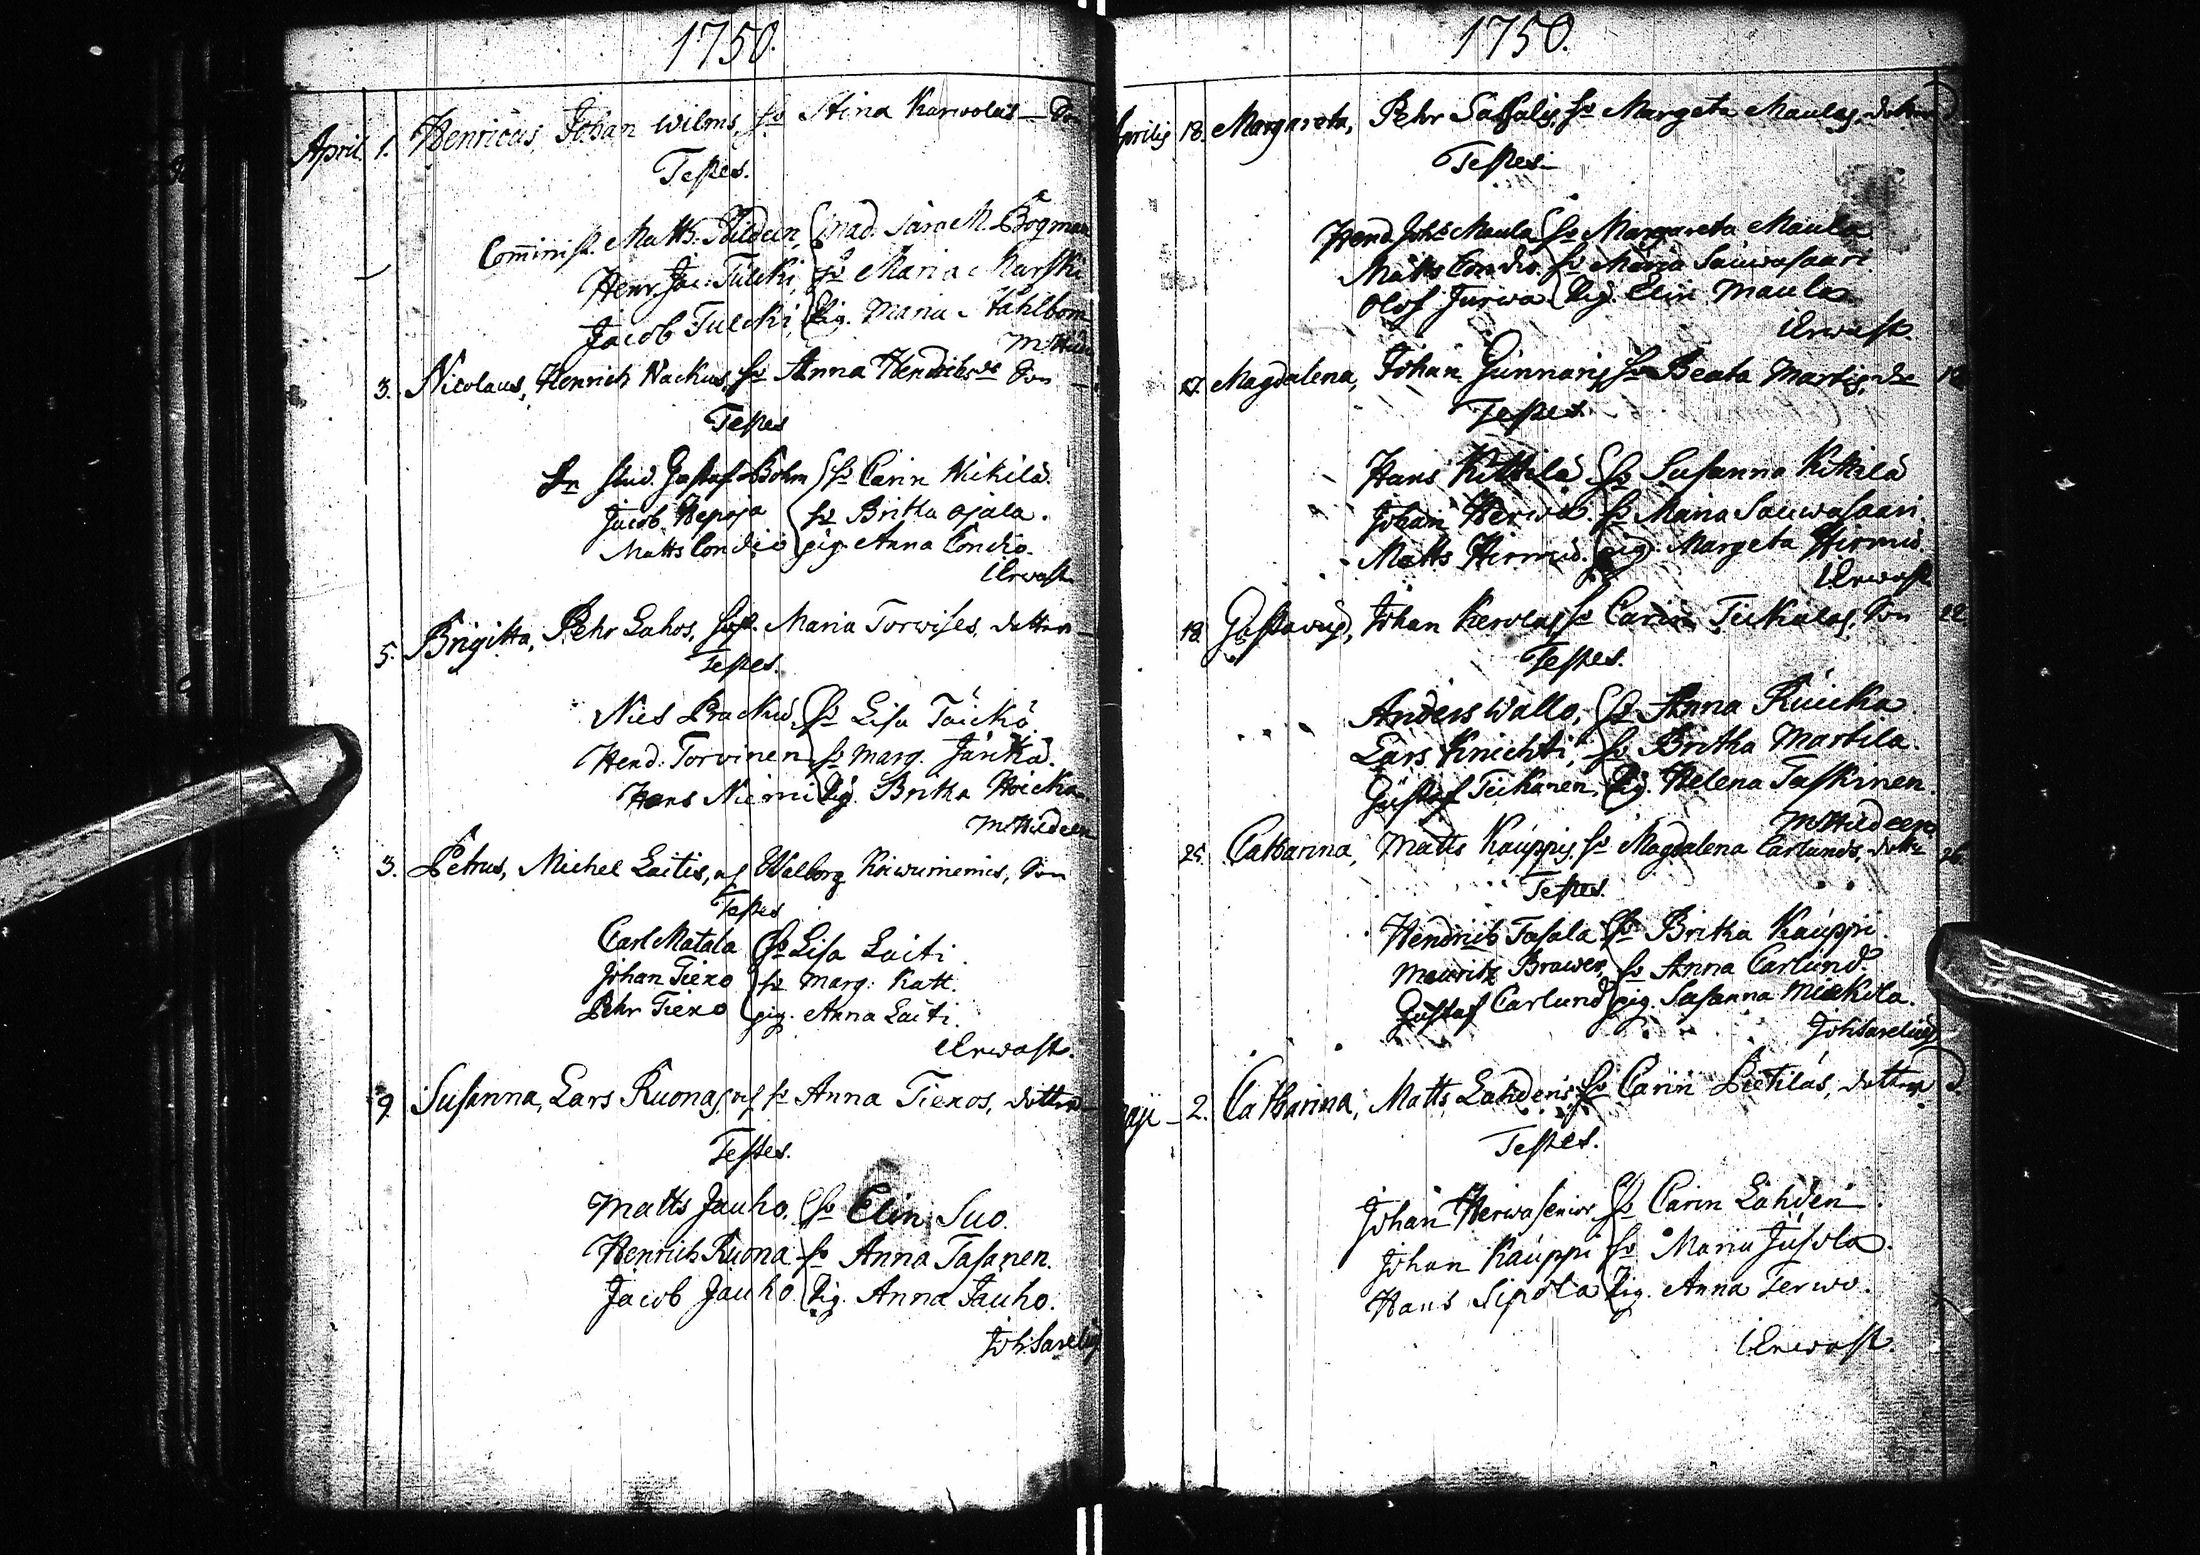 1750.
April 1. Henricus, Johan Wilms, ho Stina Karwolas
Testes.
Comminist. Matts Hildeen, mad. Sara M. Bogman
Henr. Jac: Tulcki, ho Maria Marski
Jacob Tulcki, Pig. Maria Stahlbom
M Hild
3. Nicolaus, Henrich Nackus, ho Anna Hendrichsdr Son
Testes
Hr stud. Gustaf Bohm ho Carin Nickilä.
Jacob Repoja ho Britha Ojala.
Matts Condio pig. Anna Condio.
I Erwast
5. Brigitta, Pehr Lahos, hust. Maria Torwises, dotter
Testes.
Nils Prackus, ho Lisa Taickö
Hend. Torvinen ho marg. Jänckä.
Hans Niemi Pig. Britha Hoicka
M Hildeen
3. Petrus, Michel Laitis, och Walborg Koiwuniemis, Son
Testes
Carl Matala ho Lisa Laiti.
Johan Tiexo ho marg. Katt.
Pehr Tiexo pig. Anna Laiti.
I Erwast.
9. Susanna, Lars Ruonas, och ho Anna Tiexos, dotter
Testes.
Matts Jauho. ho Elin Suo.
Henrich Ruona ho Anna Tasanen.
Jacob Jauho Pig. Anna Jauho.
Joh: Sarelig
1750.
Aprilis 18. Margareta, Pehr Sassalis, ho Margeta Maulas, dotter
Testes
Hend. Joh:s Maula ho Margareta Maula
Matts Condio. ho Maria Sauwasaari.
Olof Jurwa Pig. Elin Maula
I Erwast.
17. Magdalena, Johan Gunnaris, ho Beata Martis, dr 18
Testes
Hans Kittilä ho Susanna Kittilä
Johan Herwa. ho Maria Sauwasaari.
Matts Hirmus. pig. Margeta Hirmus.
I Erwast
18. Gustavus, Johan Kerolas, ho Carin Teikalas, Son 22
Testes.
Anders Wallo, ho Anna Ruicka
Lars Knichti, ho Britha Martila.
Gustaf Teikanen, Pig. Helena Taskinen.
M Hildeen
25. Catharina, Matts Kauppis, ho Magdalena Carlunds, dotter 26
Testes.
Hendrich Tasala ho Britha Kauppi.
Mauritz Brawer, ho Anna Carlund.
Gustaf Carlund pig. Susanna Mickila.
Joh: Sarelius
Maji 2. Catharina, Matts Lahdenis, ho Carin Pietilas, dotter
Testes.
Johan Herwa senior ho Carin Lahden
Johan Kauppi ho Maria Jusola.
Hans Sipola Pig. Anna Terwo.
I Erwast.